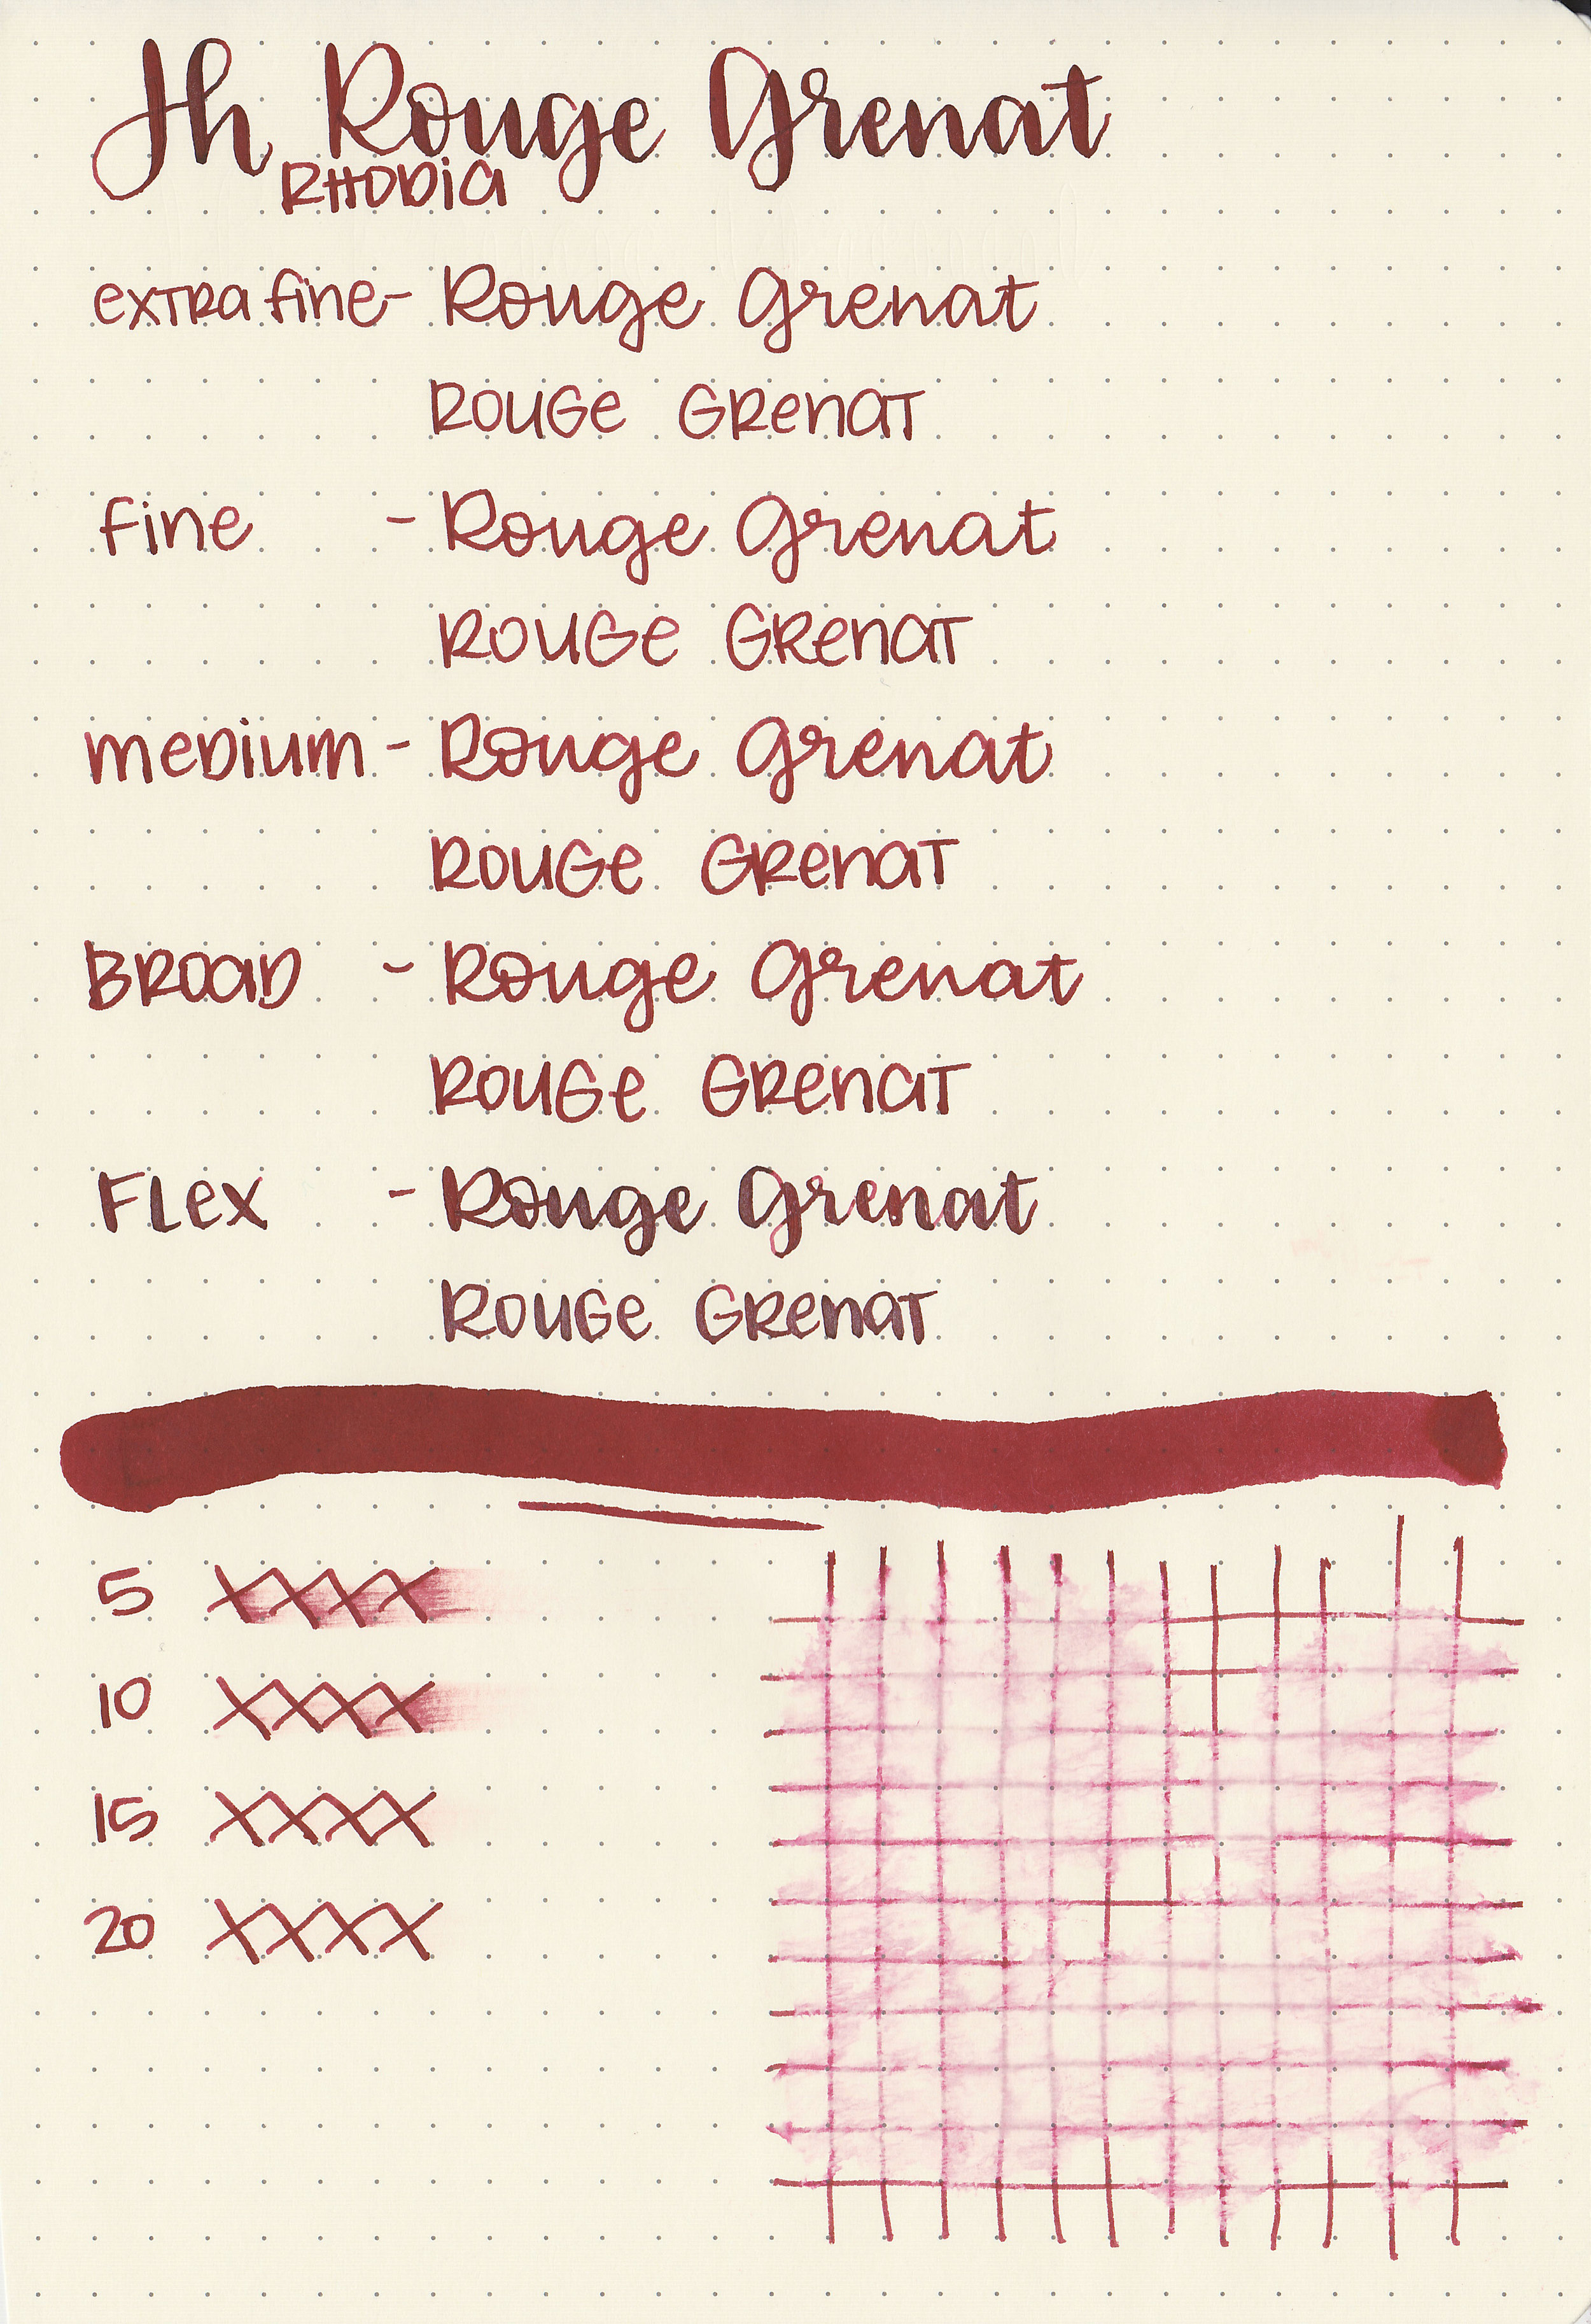 Jh Rouge Grenat
RHODiA
exTRa fine- Rouge Grenat
ROUGe GRenaT
fine - Rouge Grenat
ROUGe GRenaT
meDium - Rouge Grenat
ROUGe GRenaT
BROaD - Rouge Grenat
ROUGe GRenaT
FLex - Rouge Grenat
ROUGe GRenaT
5 XXXX
10 XXXX
15 XXXX
20 XXXX